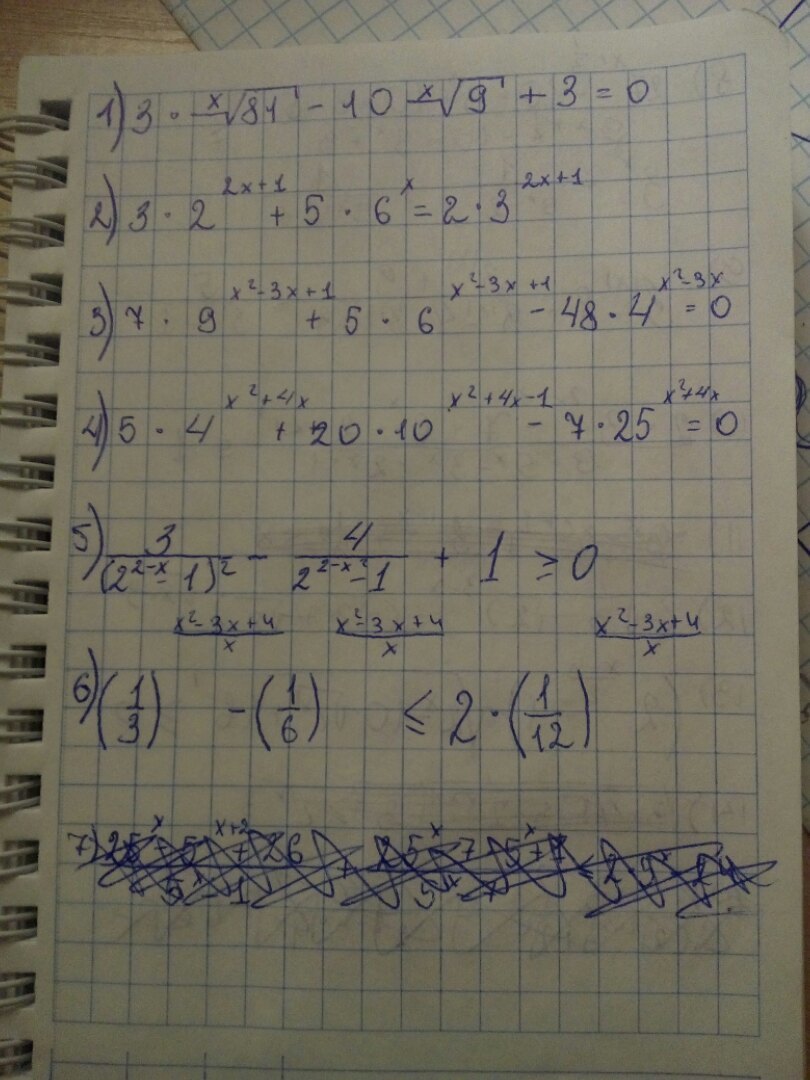 1) 3 · ˣ√81 - 10 ˣ√9 + 3 = 0
2) 3 · 2^(2x+1) + 5 · 6^x = 2 · 3^(2x+1)
3) 7 · 9^(x²-3x+1) + 5 · 6^(x²-3x+1) - 48 · 4^(x²-3x) = 0
4) 5 · 4^(x²+4x) + 20 · 10^(x²+4x-1) - 7 · 25^(x²+4x) = 0
5) 3/(2^(2-x) - 1)² - 4/(2^(2-x) - 1) + 1 ≥ 0
6) (1/3)^((x²-3x+4)/x) - (1/6)^((x²-3x+4)/x) ≤ 2 · (1/12)^((x²-3x+4)/x)
7)